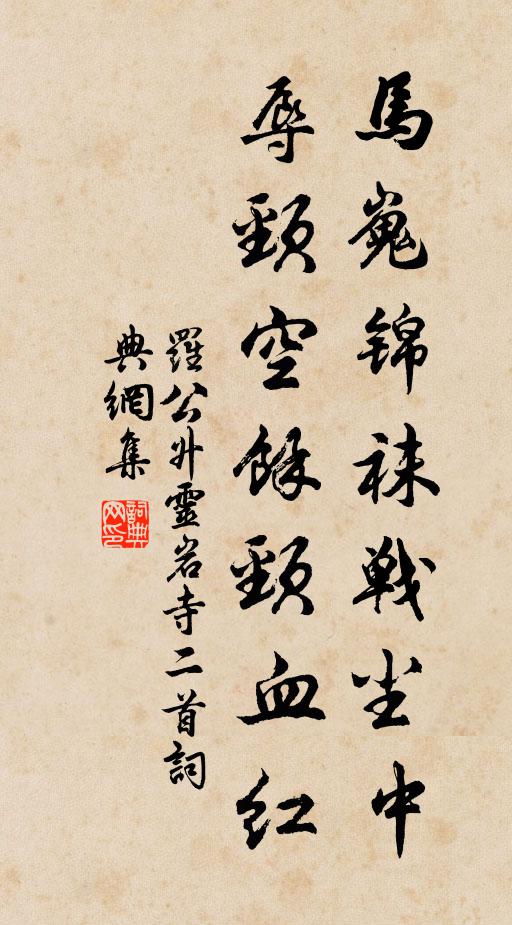 馬嵬锦袜戦尘中
辱頸空餘頸血红
羅公升靈岩寺二首詞
典網集
詞典
网印